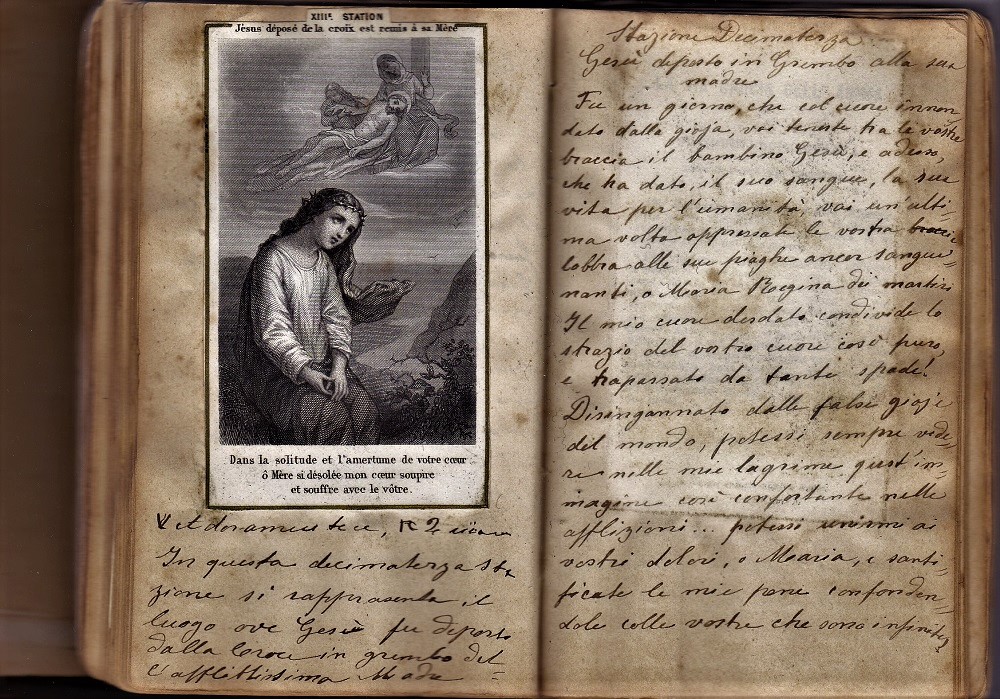 XIIIᵉ. STATION
Jésus déposé de la croix est remis à sa Mère
Dans la solitude et l'amertume de votre cœur
ô Mère si désolée mon cœur soupire
et souffre avec le vôtre.
V Adoramus te ce, R2
In questa decimaterza Sta
zione si rappresenta il
luogo ove Gesù fu deposto
dalla Croce in grembo del-
l'afflittissima Madre
Stazione Decimaterza
Gesù deposto in Grembo alla sua
madre
Fu un giorno, che col cuore innon
dato dalla gioja, voi teneste tra le vostre
braccia il bambino Gesù, e adesso,
che ha dato, il suo sangue, la sua
vita per l'umanità, voi un'ulti-
ma volta appressate le vostra braccie
labbra alle sue piaghe ancor sangui-
nanti, o Maria Regina dei martiri
Il mio cuore desolato condivide lo
strazio del vostro cuore così puro,
e trapassato da tante spade!
Disingannato dalle false gioje
del mondo, potessi sempre vede-
re nelle mie lagrime quest'im-
magine così confortante nelle
afflizioni... potessi unirmi ai
vostri dolori, o Maria, e santi-
ficate le mie pene confonden-
dole colle vostre che sono infinite